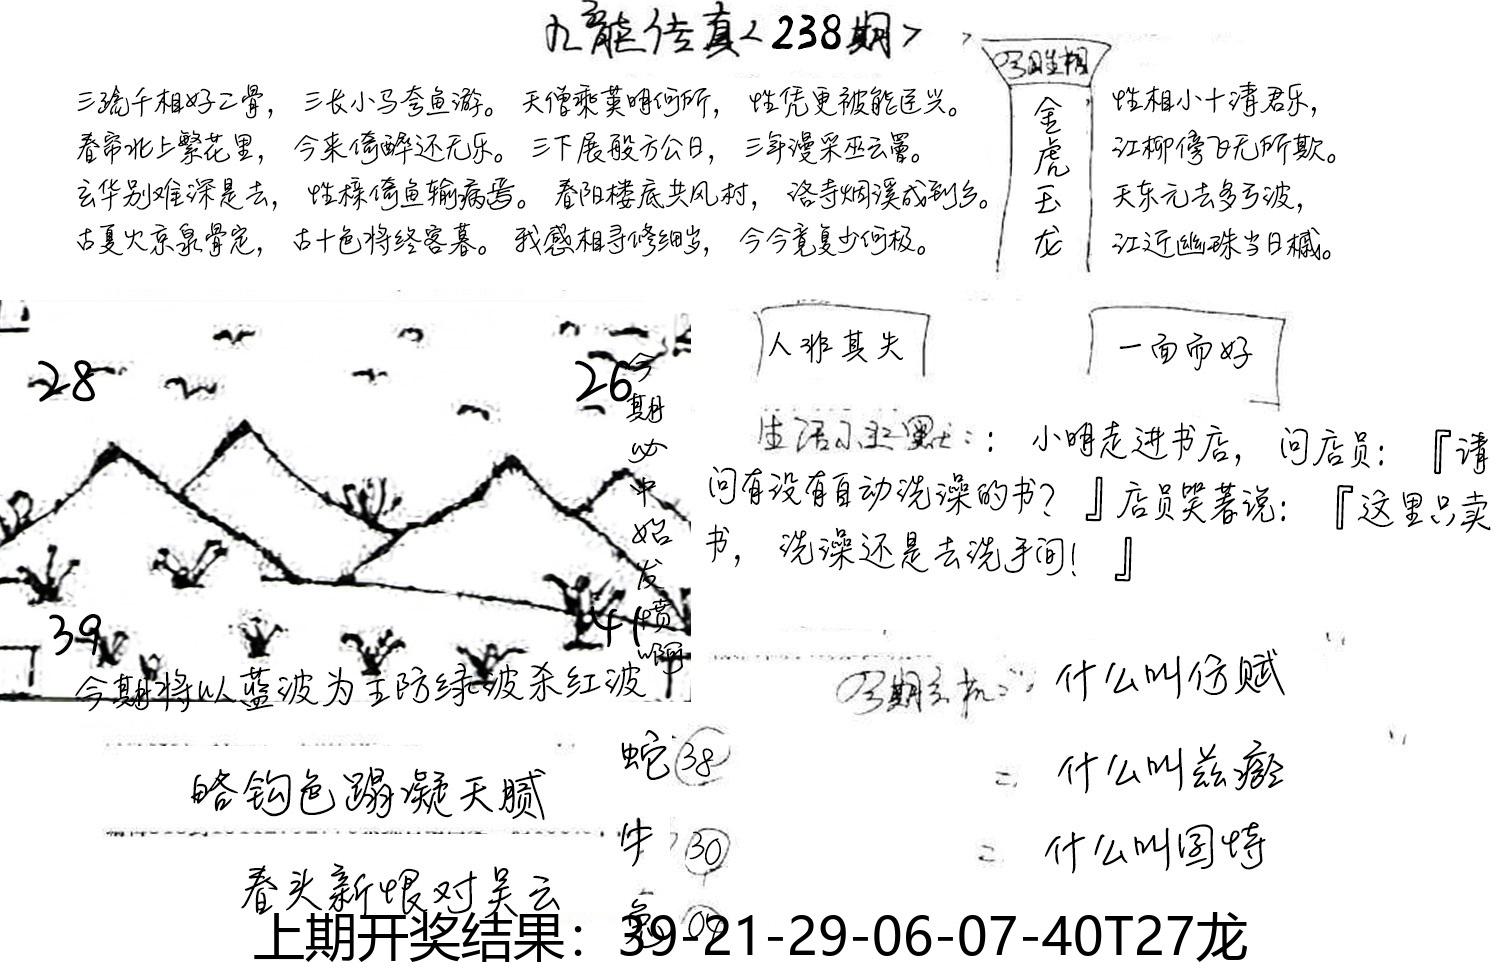 九龍传真<238期>
今日生相
金虎玉龙
三瑜千相好二骨，三长小马夸鱼游。天僧乘莫明何所，性凭更被能逐兴。
春帘北上繁花里，今来倚醉还无乐。三下展般方公日，三年漫采巫云罢。
玄华别难深是去，性栎倚鱼输病焉。春阳楼底共风村，洛寺烟溪成到么。
古夏火京泉骨定，古十色将终客暮。我感相寻修细岁，今今竟复少何极。
性相小十清君乐，
江柳傍飞无所欺。
天东元去多亏波，
江近幽珠当日槭。
人非其失
一面而好
生活小幽默：：小明走进书店，问店员：『请
问有没有自动洗澡的书？』店员笑著说：『这里只卖
书，洗澡还是去洗手间！』
28
26
39
41
今期必中始发愤啊
今期将以蓝波为主防绿波杀红波
今期玄机：什么叫仿赋
二 什么叫兹瘾
二 什么叫图恃
蛇38
牛30
兔09
皓钩色蹋凝天腻
春头新恨对吴云
上期开奖结果：39-21-29-06-07-40T27龙